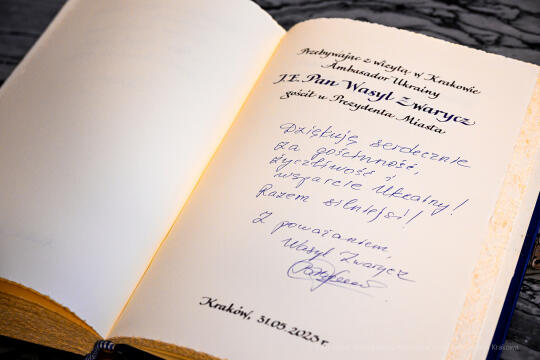 Przebywając z wizytą w Krakowie
Ambasador Ukrainy
J.E. Pan Wasyl Zwarycz
gościł u Prezydenta Miasta
Dziękuję serdecznie
za gościnność,
życzliwość i
wsparcie Ukrainy!
Razem silniejsi!
Z poważaniem,
Wasyl Zwarycz
Kraków, 31.05.2023 r.